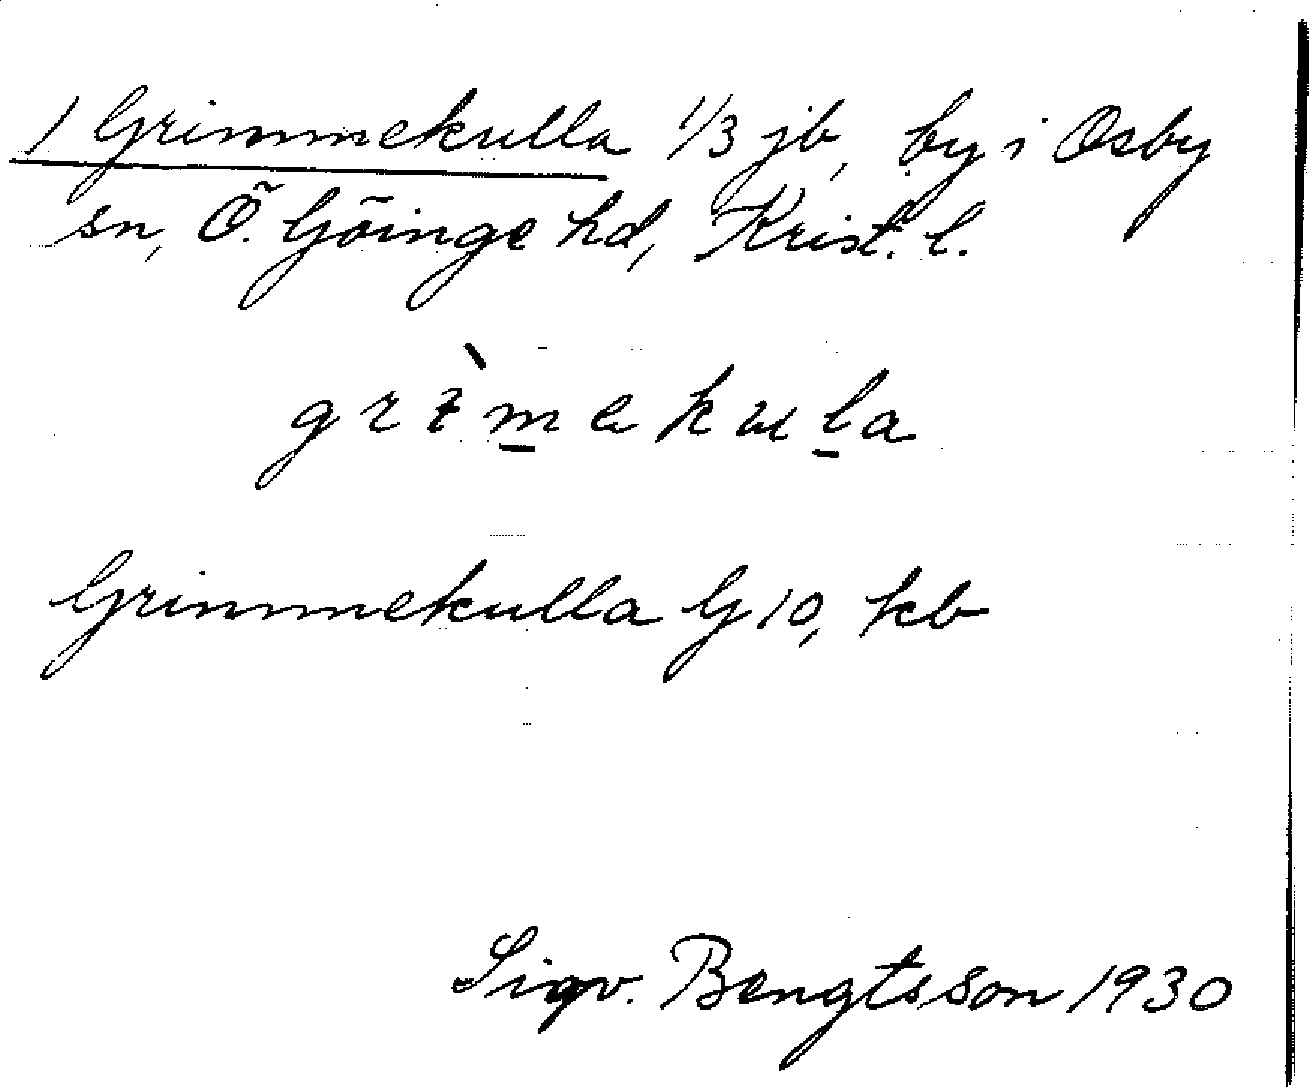 1 Grimmekulla 1/3 jb, by i Osby
sn, Ö. Göinge hd, Krist. l.
grìmekula
Grimmekulla G 10, kb
Sigv. Bengtsson 1930